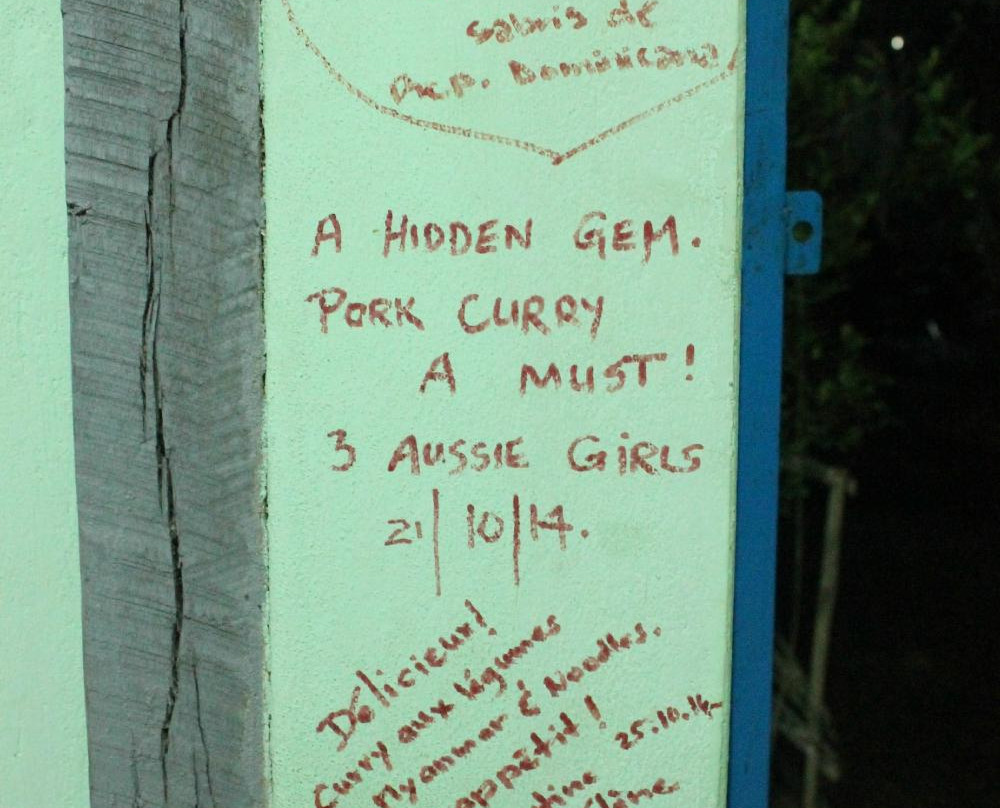 sabris de
Rep. Dominicana
A HIDDEN GEM.
PORK CURRY
A MUST!
3 AUSSIE GIRLS
21/10/14.
Délicieux!
Curry aux légumes
Myanmar & Noodles.
appétit!
25.10.14